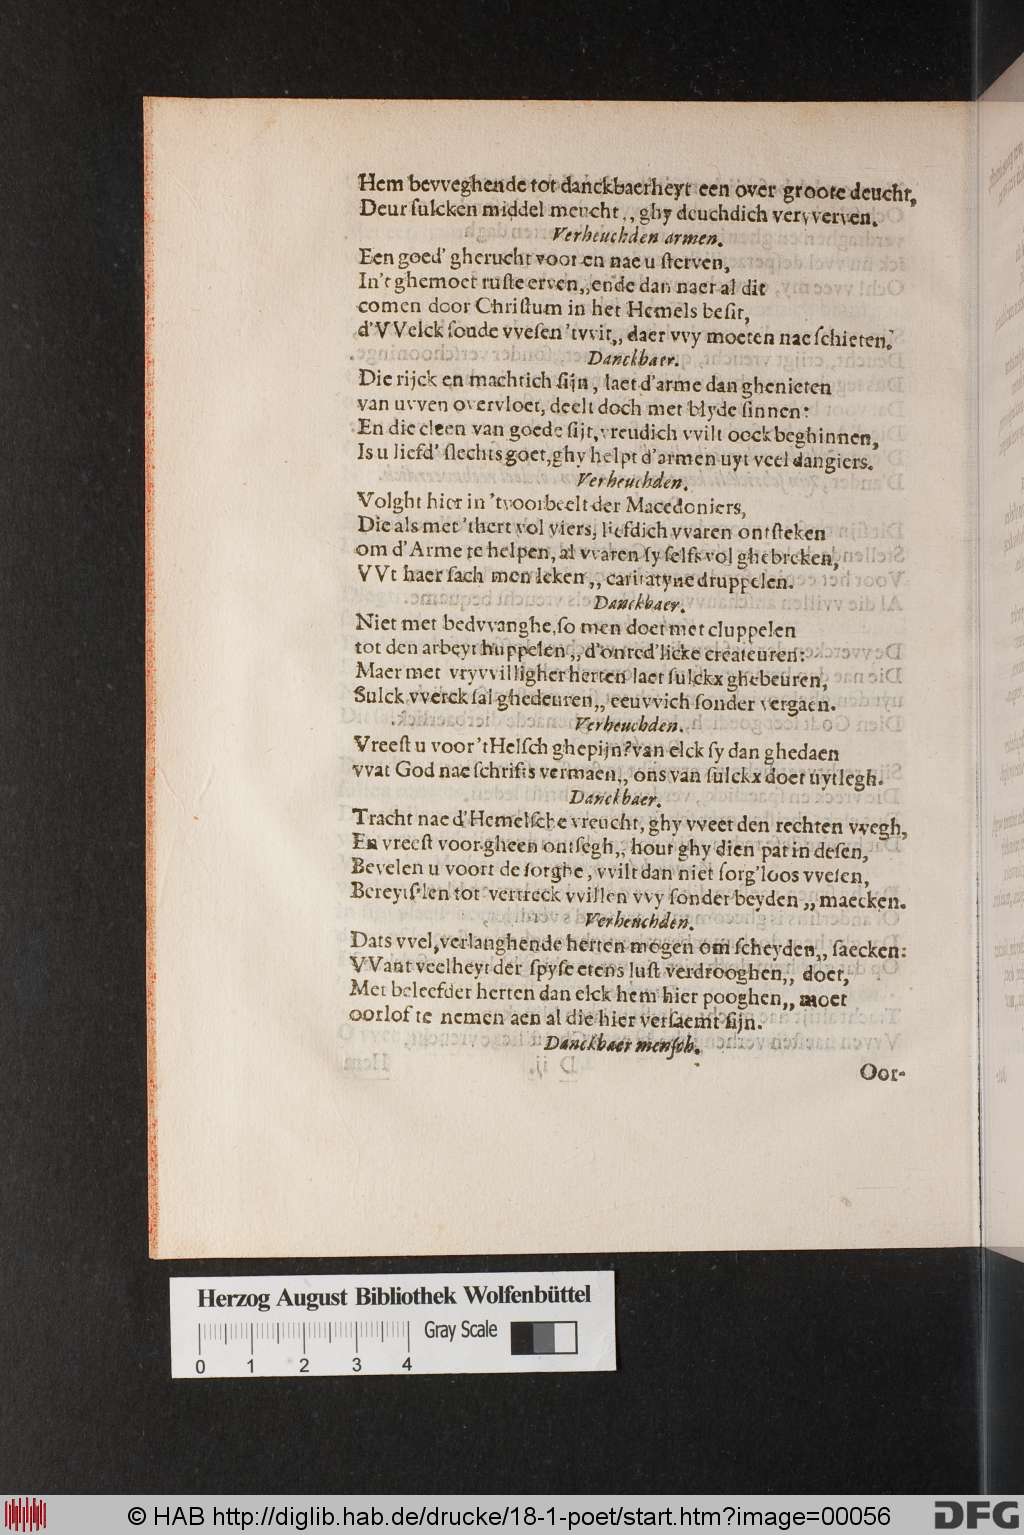 Hem bevveghende tot danckbaerheyt een over groote deucht,
Deur sulcken middel meucht,, ghy deuchdich vervverven.
Verheuchden armen.
Een goed' gherucht voor en nae u sterven,
In't ghemoet ruste erven,, ende dan naer al dit
comen door Christum in het Hemels besit,
d'VVelck soude vvesen 'tvvit,, daer vvy moeten nae schieten.
Danckbaer.
Die rijck en machtich sijn, laet d'arme dan ghenieten
van uvven overvloet, deelt doch met blyde sinnen:
En die cleen van goede sijt, vreudich vvilt oock beghinnen,
Is u liefd' slechts goet, ghy helpt d'armen uyt veel dangiers.
Verheuchden.
Volght hier in 'tvoorbeelt der Macedoniers,
Die als met 'thert vol viers, liefdich vvaren ontsteken
om d'Arme te helpen, al vvaren sy selfs vol ghebreken,
VVt haer sach men leken,, caritatyne druppelen.
Danckbaer.
Niet met bedvvanghe, so men doet met cluppelen
tot den arbeyt huppelen,, d'onred'licke createuren:
Maer met vryvvilligher herten laet sulckx ghebeuren,
Sulck vverck sal ghedeuren,, eeuvvich sonder vergaen.
Verheuchden.
Vreest u voor 'tHelsch ghepijn? van elck sy dan ghedaen
vvat God nae schrifts vermaen,, ons van sulckx doet uytlegh.
Danckbaer.
Tracht nae d'Hemelsche vreucht, ghy vveet den rechten vvegh,
En vreest voor gheen ontsegh,, hout ghy dien pat in desen,
Bevelen u voort de sorghe, vvilt dan niet sorg'loos vvesen,
Bereyt selen tot vertreck vvillen vvy sonder beyden,, maecken.
Verheuchden.
Dats vvel, verlanghende herten mogen om scheyden,, saecken:
VVant veelheyt der spyse etens lust verdrooghen,, doet,
Met beleefder herten dan elck hem hier pooghen,, moet
oorlof te nemen aen al die hier versaemt sijn.
Danckbaer mensch.
Oor-
Herzog August Bibliothek Wolfenbüttel
Gray Scale
0 1 2 3 4
© HAB http://diglib.hab.de/drucke/18-1-poet/start.htm?image=00056
DFG